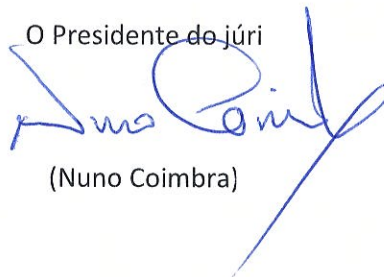 O Presidente do júri
Nuno Coimbra
(Nuno Coimbra)